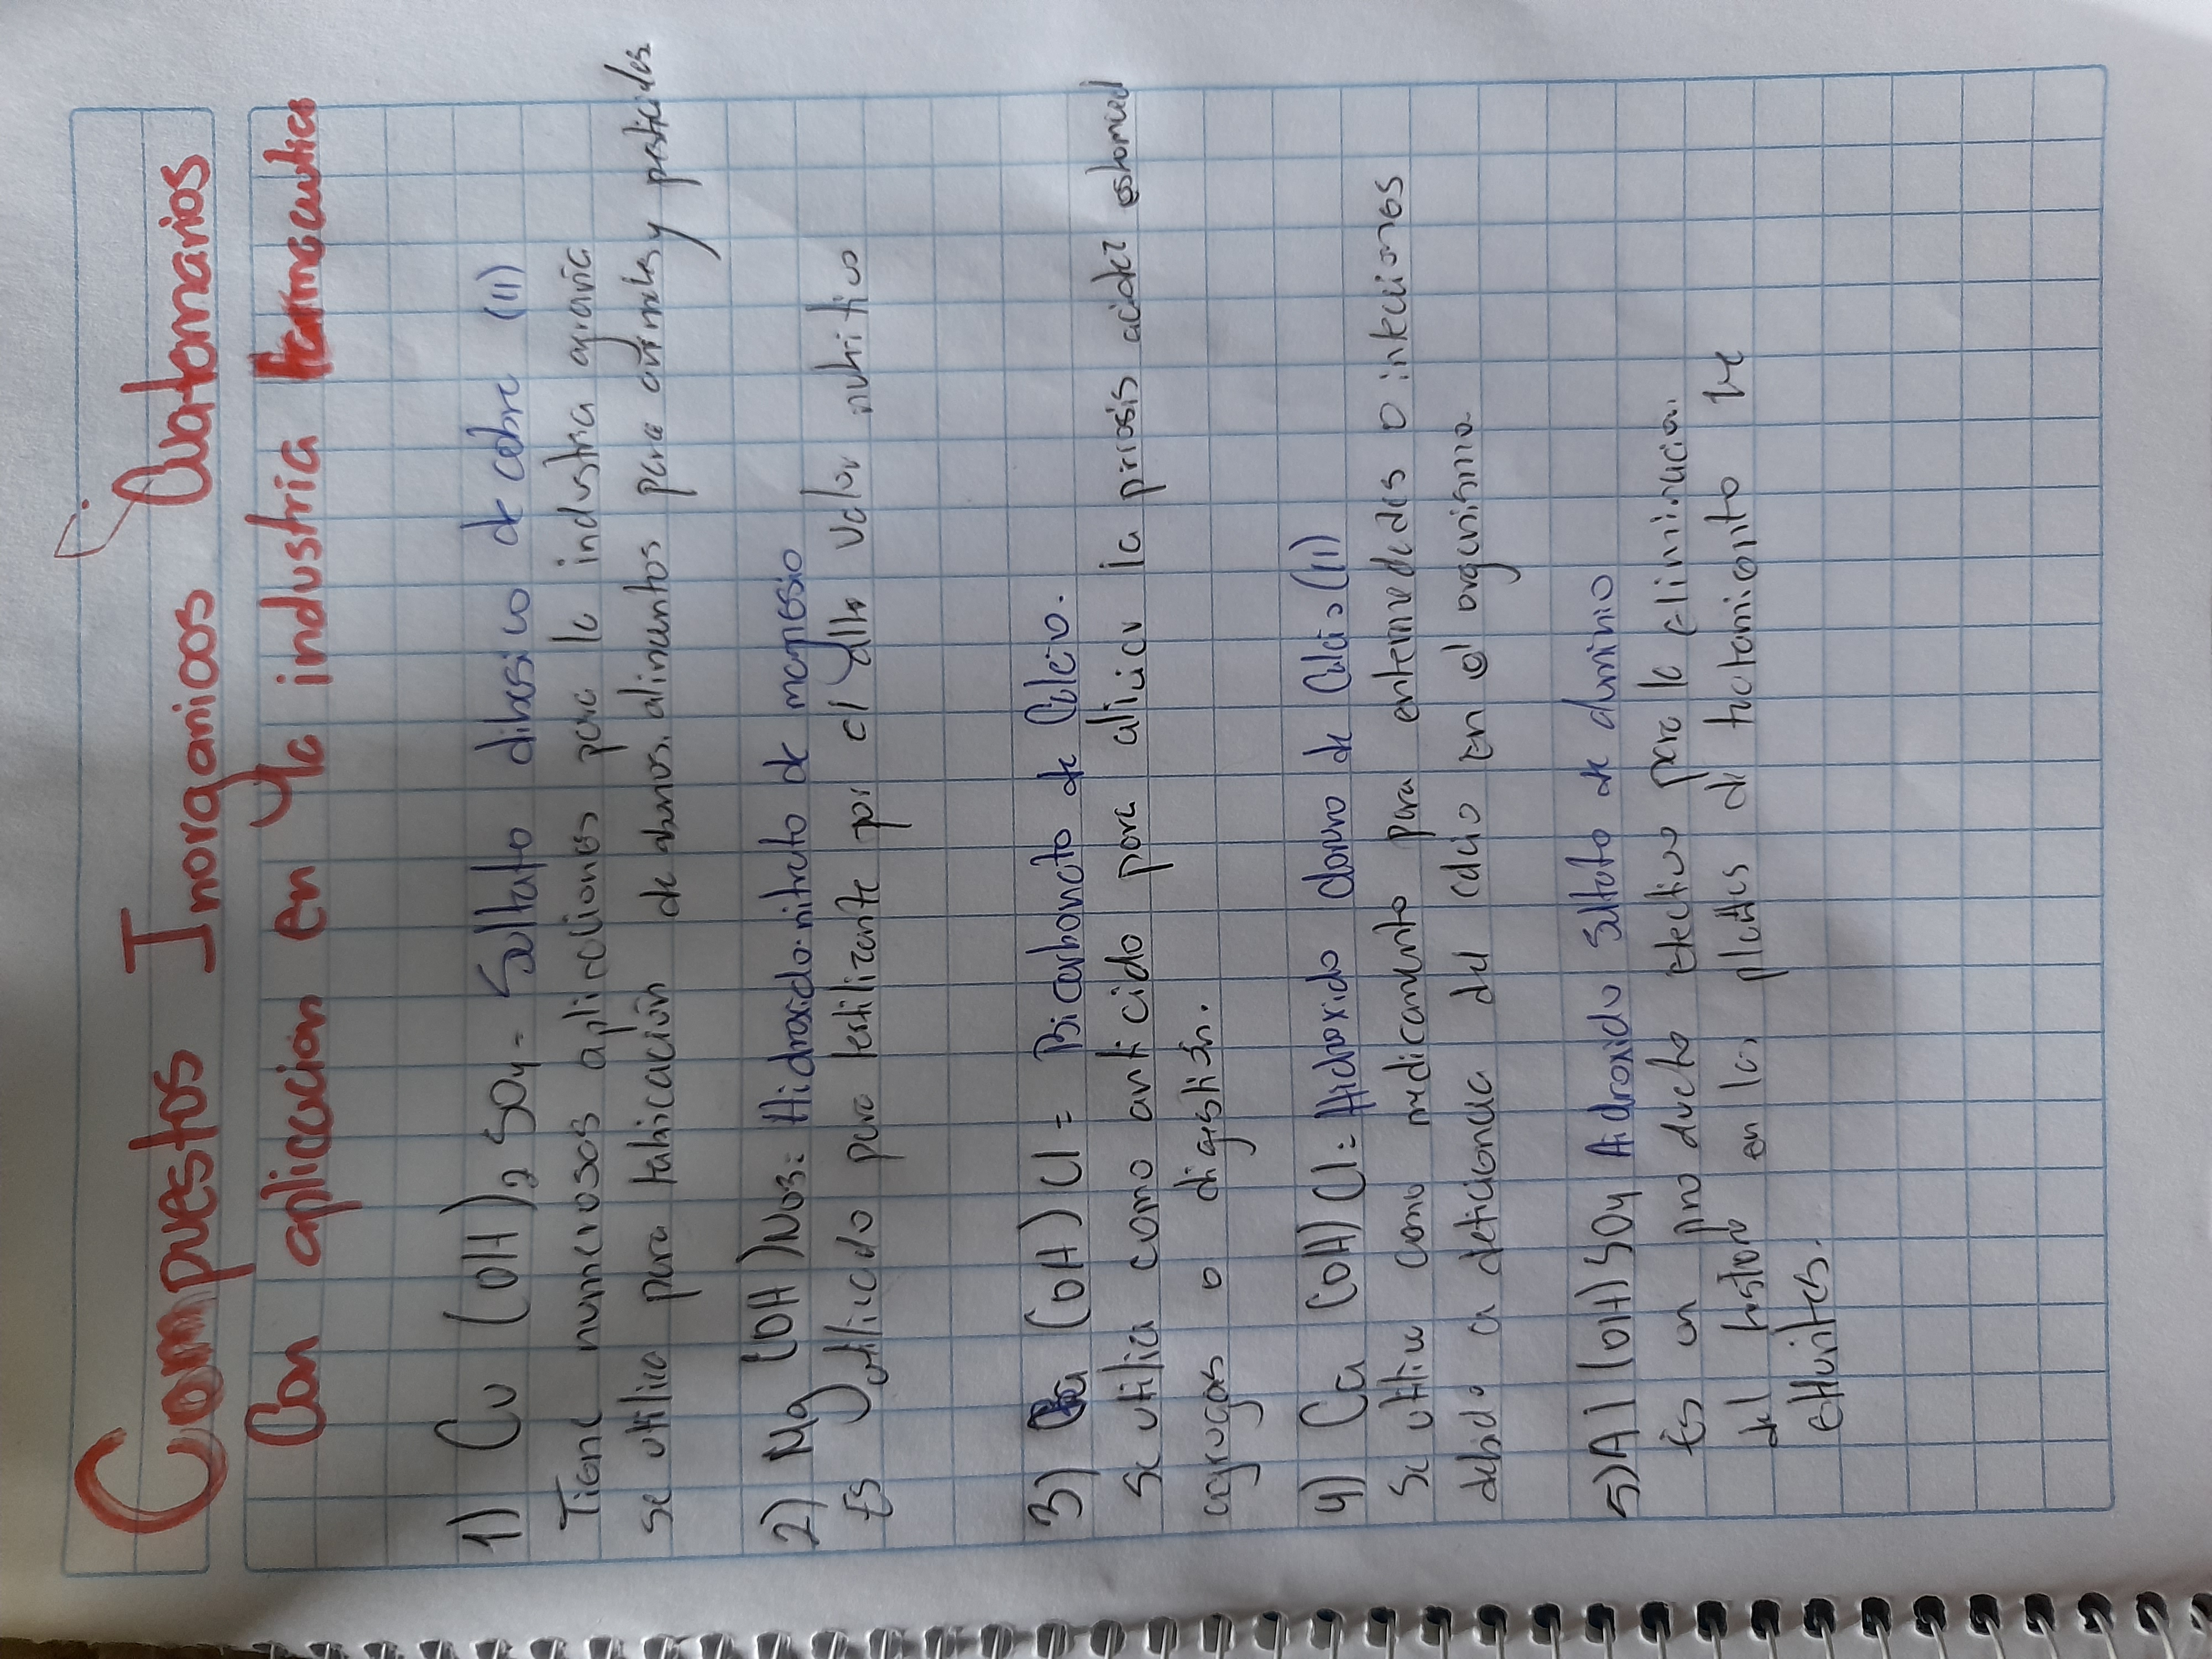 Compuestos Inorganicos Cuaternarios
Con aplicación en la industria farmaceutica
1) Cu (OH)2 SO4 = Sulfato dibasico de cobre (II)
Tiene numerosas aplicaciones para la industria agraria
se utiliza para fabricación de abonos, alimentos para animales y pesticidas
2) Mg (OH) NO3: Hidroxido-nitrato de magnesio
Es utilizado para festilizante por el alto valor nutritivo
3) Ca (OH) Cl = Bicarbonato de Calcio.
Se utiliza como anticido para aliviar la pirosis acidez estomacal
agrugas o digestión.
4) Ca (OH) Cl: Hidroxido cloruro de Calcio (II)
Se utiliza como medicamento para enfermedades o infecciones
debido a deficiencia del calcio en el organismo.
5) Al (OH) SO4 Hidroxido Sulfato de aluminio
Es un producto efectivo para la eliminación
del en las plattas de tratamiento de
efluintes.